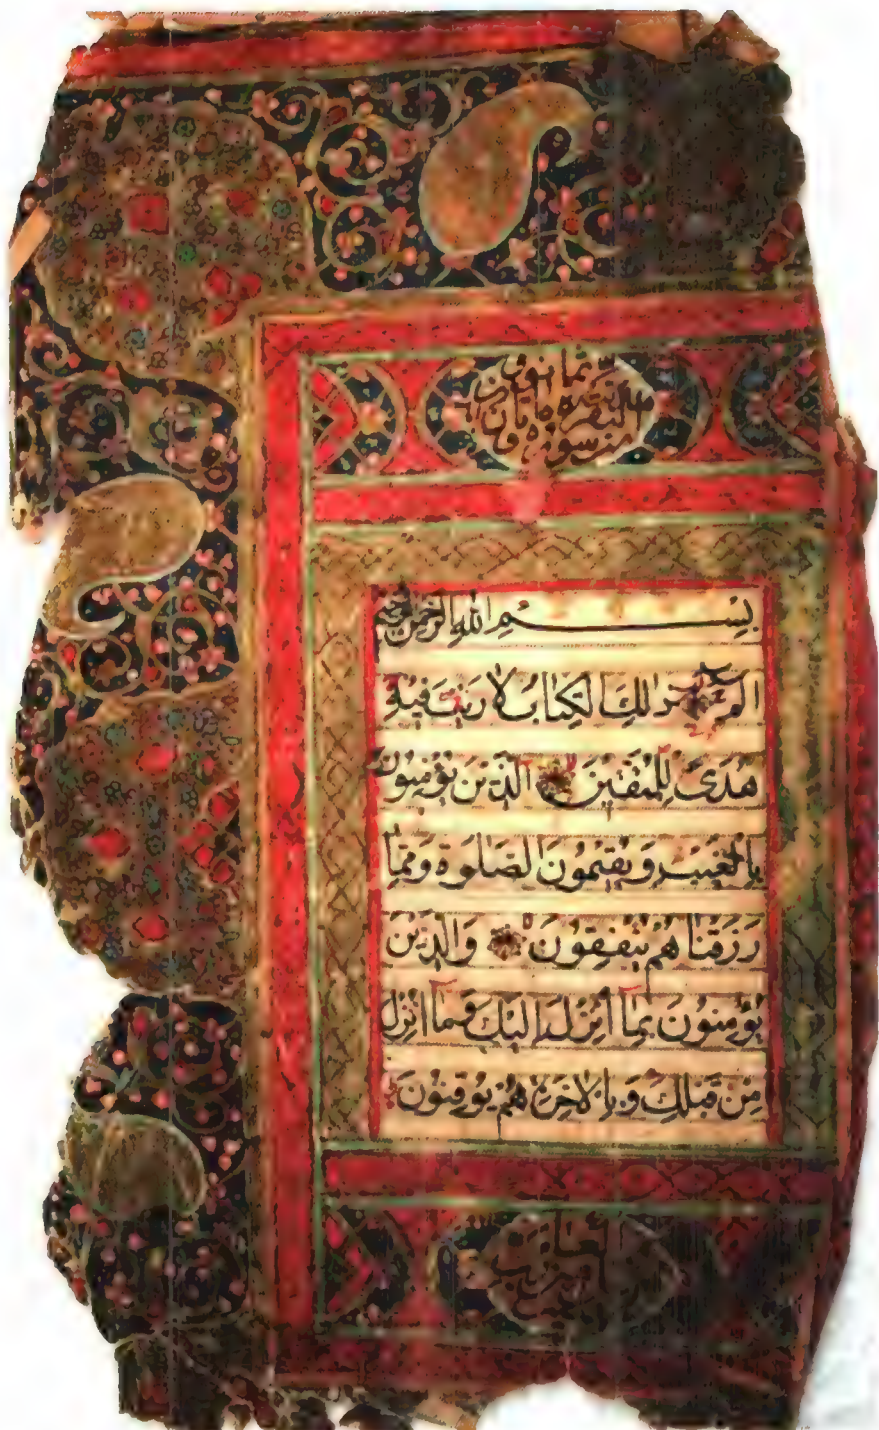 سورة
البقرة
بِسْمِ اللهِ الرَّحْمٰنِ الرَّحِيمِ
الم ذَلِكَ الْكِتَابُ لَا رَيْبَ فِيهِ
هُدًى لِلْمُتَّقِينَ الَّذِينَ يُؤْمِنُونَ
بِالْغَيْبِ وَيُقِيمُونَ الصَّلَوةَ وَمِمَّا
رَزَقْنَاهُمْ يُنْفِقُونَ وَالَّذِينَ
يُؤْمِنُونَ بِمَا أُنْزِلَ إِلَيْكَ وَمَا أُنْزِلَ
مِنْ قَبْلِكَ وَبِالْآخِرَةِ هُمْ يُوقِنُونَ